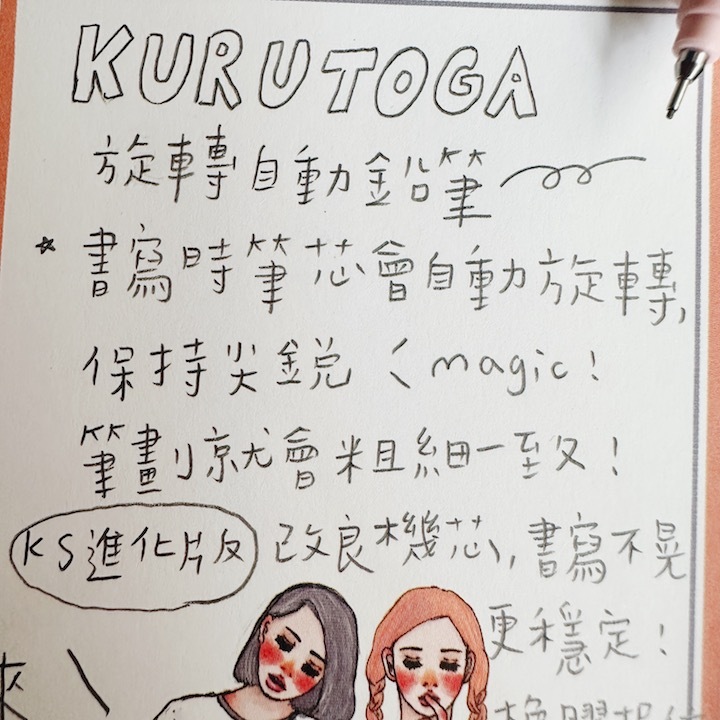 KURUTOGA
旋轉自動鉛筆
★書寫時筆芯會自動旋轉,
保持尖銳〈magic!
筆劃就會粗細一致!
KS進化版 改良機芯,書寫不晃
更穩定!